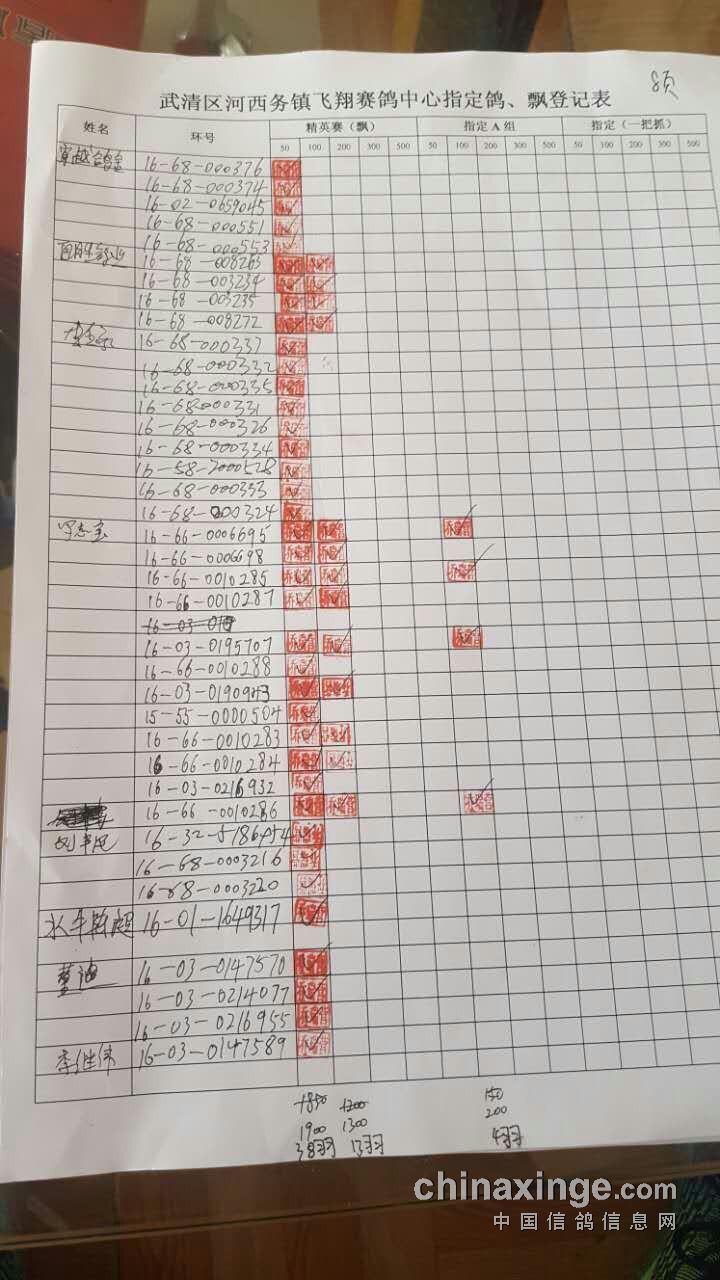 武清区河西务镇飞翔赛鸽中心指定鸽、飘登记表
姓名 环号 精英赛（飘） 指定 A 组 指定（一把抓）
50 100 200 300 500 50 100 200 300 500 50 100 200 300 500
16-68-000376
16-68-000374
16-02-0659045
16-68-000551
16-68-000553
16-68-008263
16-68-003234
16-68-003235
16-68-008272
16-68-000337
16-68-000332
16-68-000335
16-68-000331
16-68-000326
16-68-000334
16-68-000333
16-68-000324
16-66-0006695
16-66-0006698
16-66-0010285
16-66-0010287
16-03-0195707
16-66-0010288
16-03-0190943
15-55-0000504
16-66-0010283
16-66-0010284
16-03-0216932
16-66-0010286
16-68-0003216
16-68-0003220
16-01-1649317
董迪 16-03-0147570
16-03-0214077
16-03-0216955
李继伟 16-03-0147589
1850 1200 150
1900 1300 200
38羽 13羽 4羽
chinaxinge.com
中国信鸽信息网